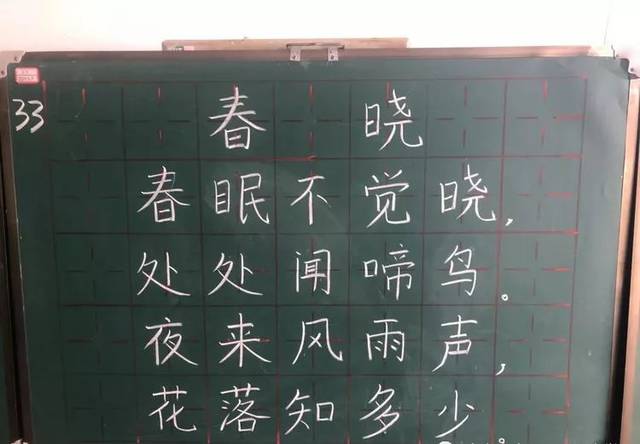 33
春晓
春眠不觉晓,
处处闻啼鸟。
夜来风雨声,
花落知多少